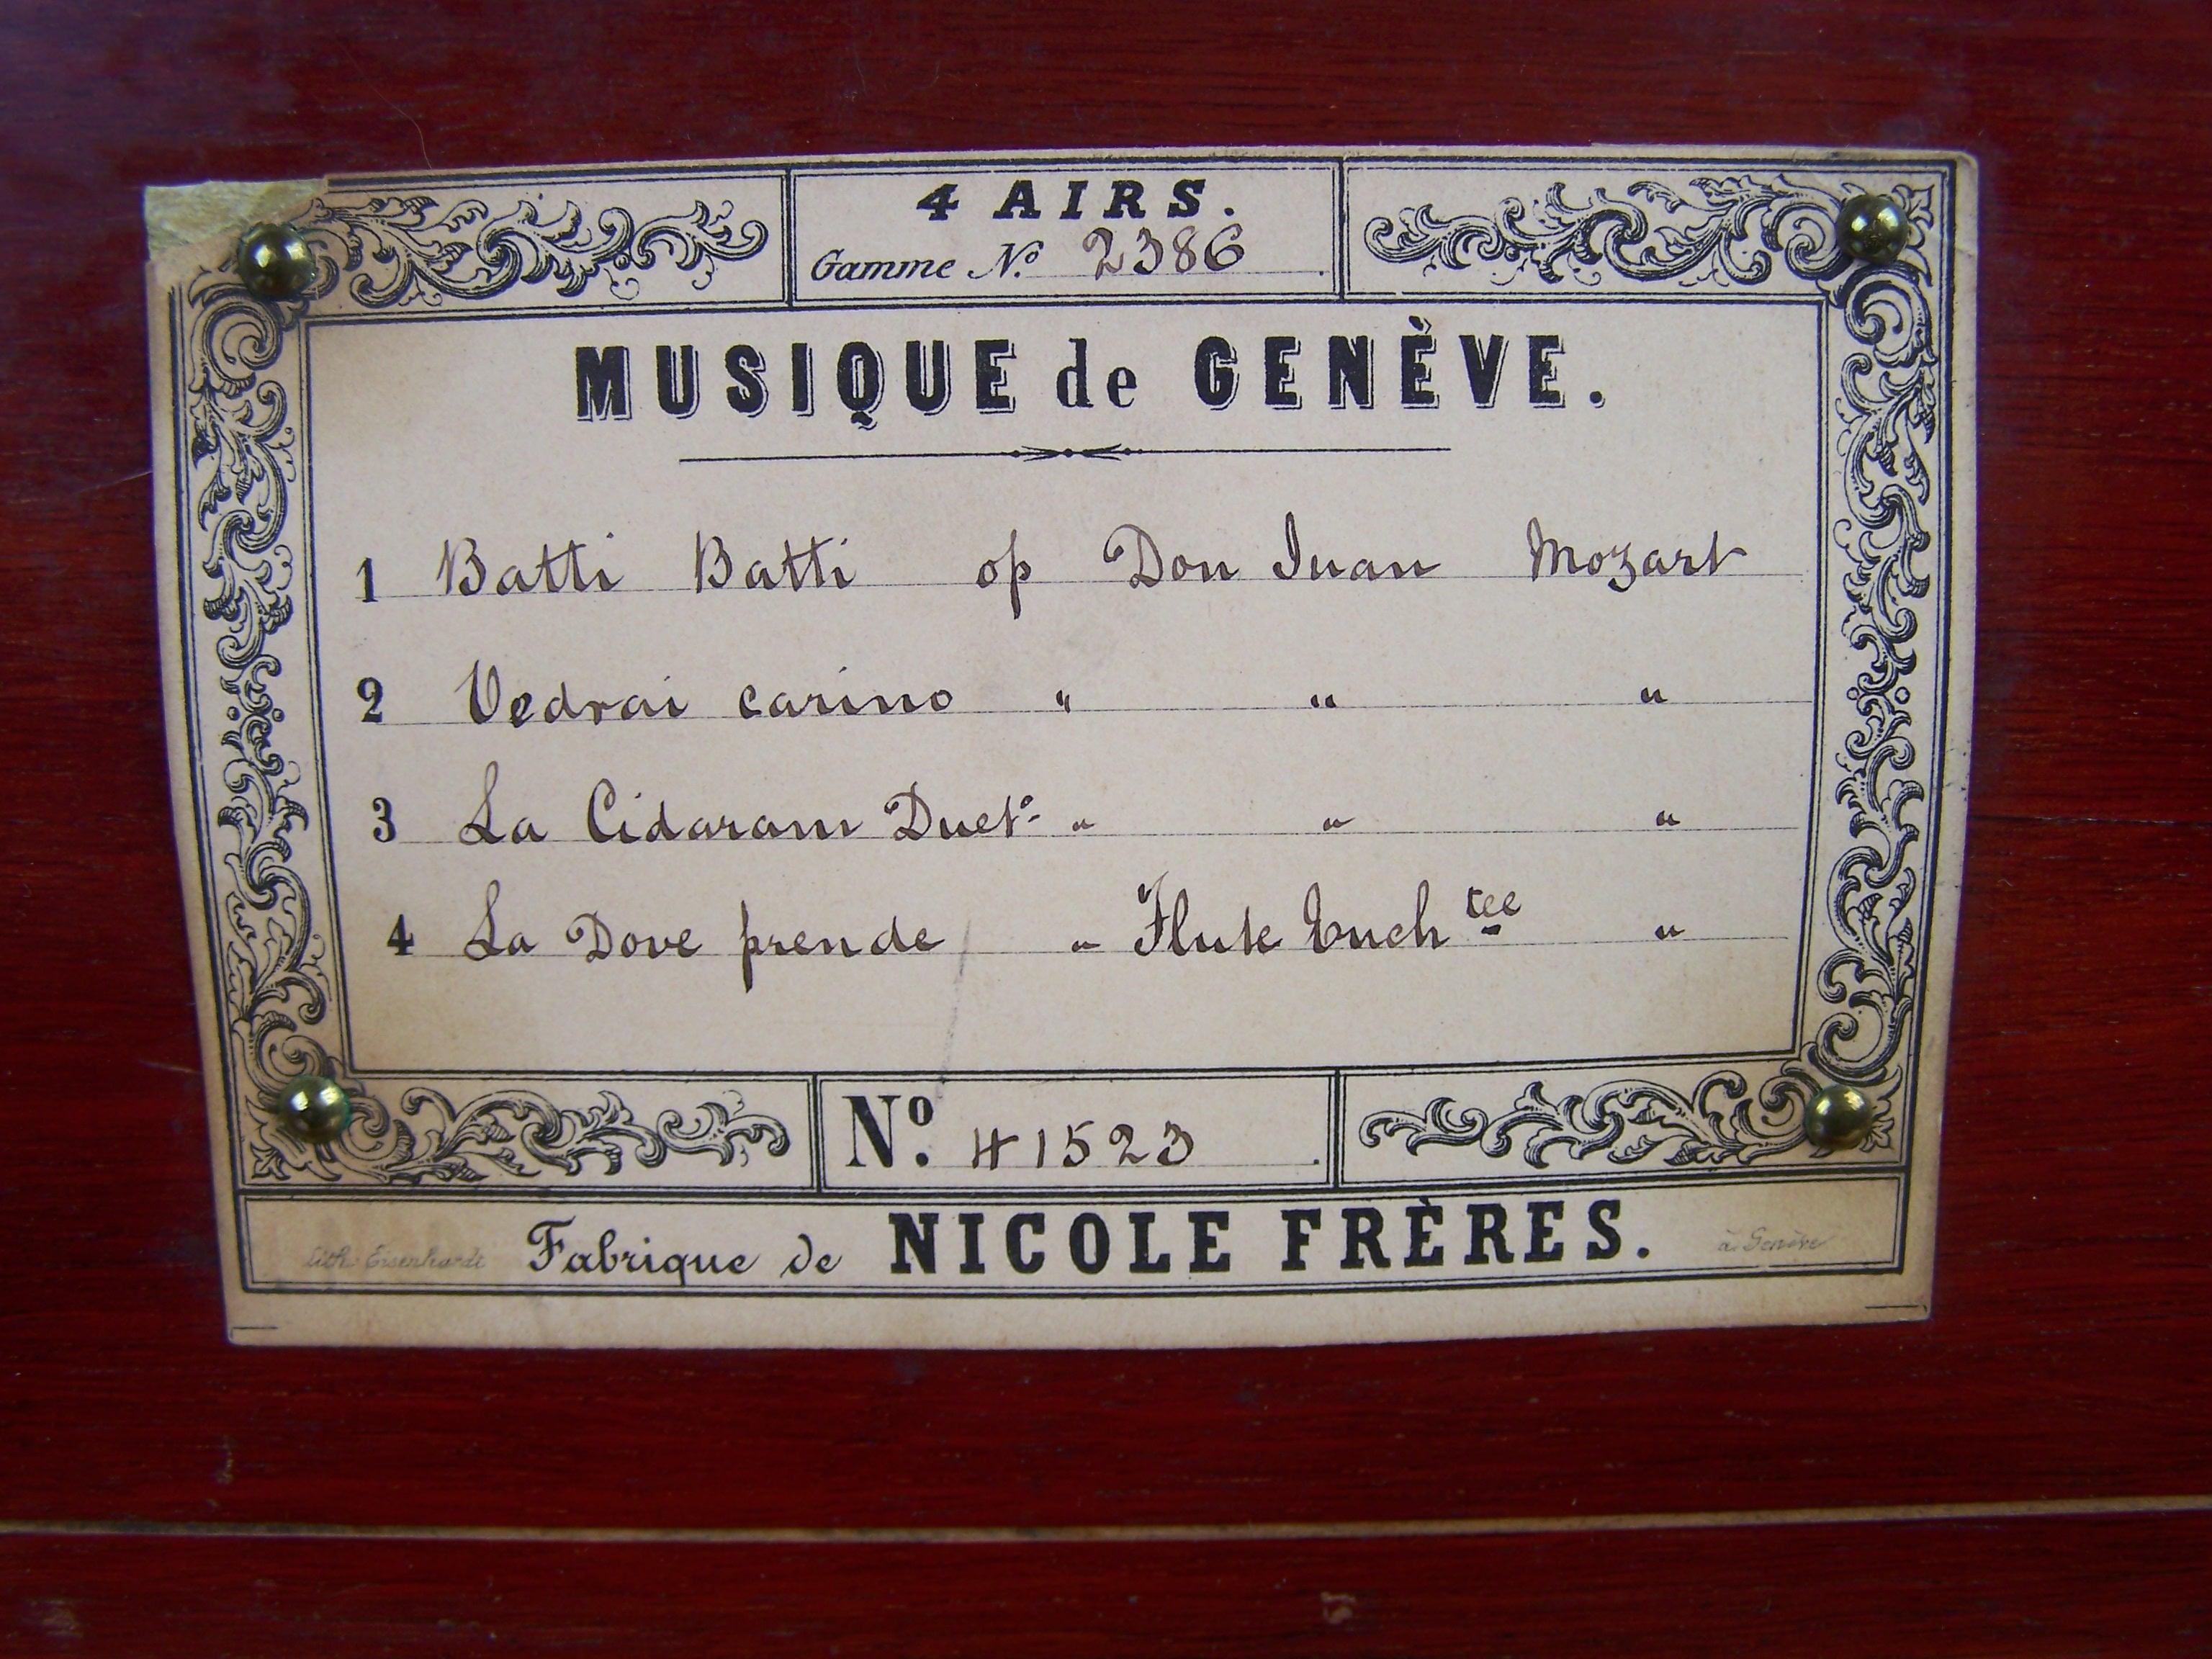 4 AIRS.
Gamme No. 2386
MUSIQUE de GENÈVE.
1 Batti Batti op Don Juan Mozart
2 Vedrai carino " " "
3 La Cidaram Duet° " " "
4 La Dove prende " Flute Ench tee "
No. 41523
Lith. Eisenhardt Fabrique de NICOLE FRÈRES. à Genève